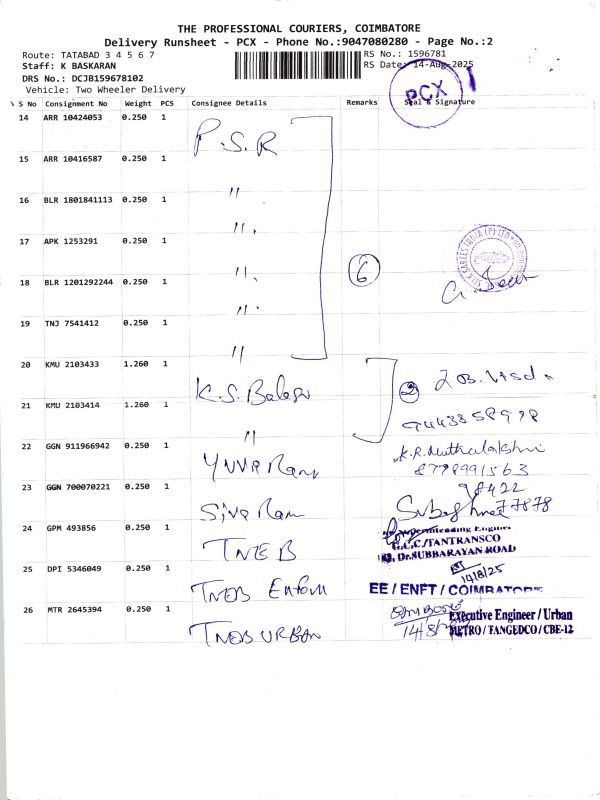 THE PROFESSIONAL COURIERS, COIMBATORE
Delivery Runsheet - PCX - Phone No.:9047080280 - Page No.:2
Route: TATABAD 3 4 5 6 7 RS No.: 1596781
Staff: K BASKARAN RS Date: 14-Aug-2025
DRS No.: DCJB159678102
Vehicle: Two Wheeler Delivery
PCX
\ S No Consignment No Weight PCS Consignee Details Remarks Seal & Signature
14 ARR 10424053 0.250 1 P.S.R
15 ARR 10416587 0.250 1 "
16 BLR 1801841113 0.250 1 "
17 APK 1253291 0.250 1 "
6
18 BLR 1201292244 0.250 1 "
19 TNJ 7541412 0.250 1 "
20 KMU 2103433 1.260 1 K.S. 2
21 KMU 2103414 1.260 1 "
22 GGN 911966942 0.250 1 YUVA Ram K.R. Muthulakshmi
8778991563
23 GGN 700070221 0.250 1 Siva Ram
24 GPM 493856 0.250 1 TNEB Superintending Engineer
G.C.C/TANTRANSCO
Dr.SUBBARAYAN ROAD
25 DPI 5346049 0.250 1 TNEB 14/8/25
EE / ENFT / COIMBATORE
26 MTR 2645394 0.250 1 TNEB URBAN Executive Engineer / Urban
METRO / TANGEDCO / CBE-12